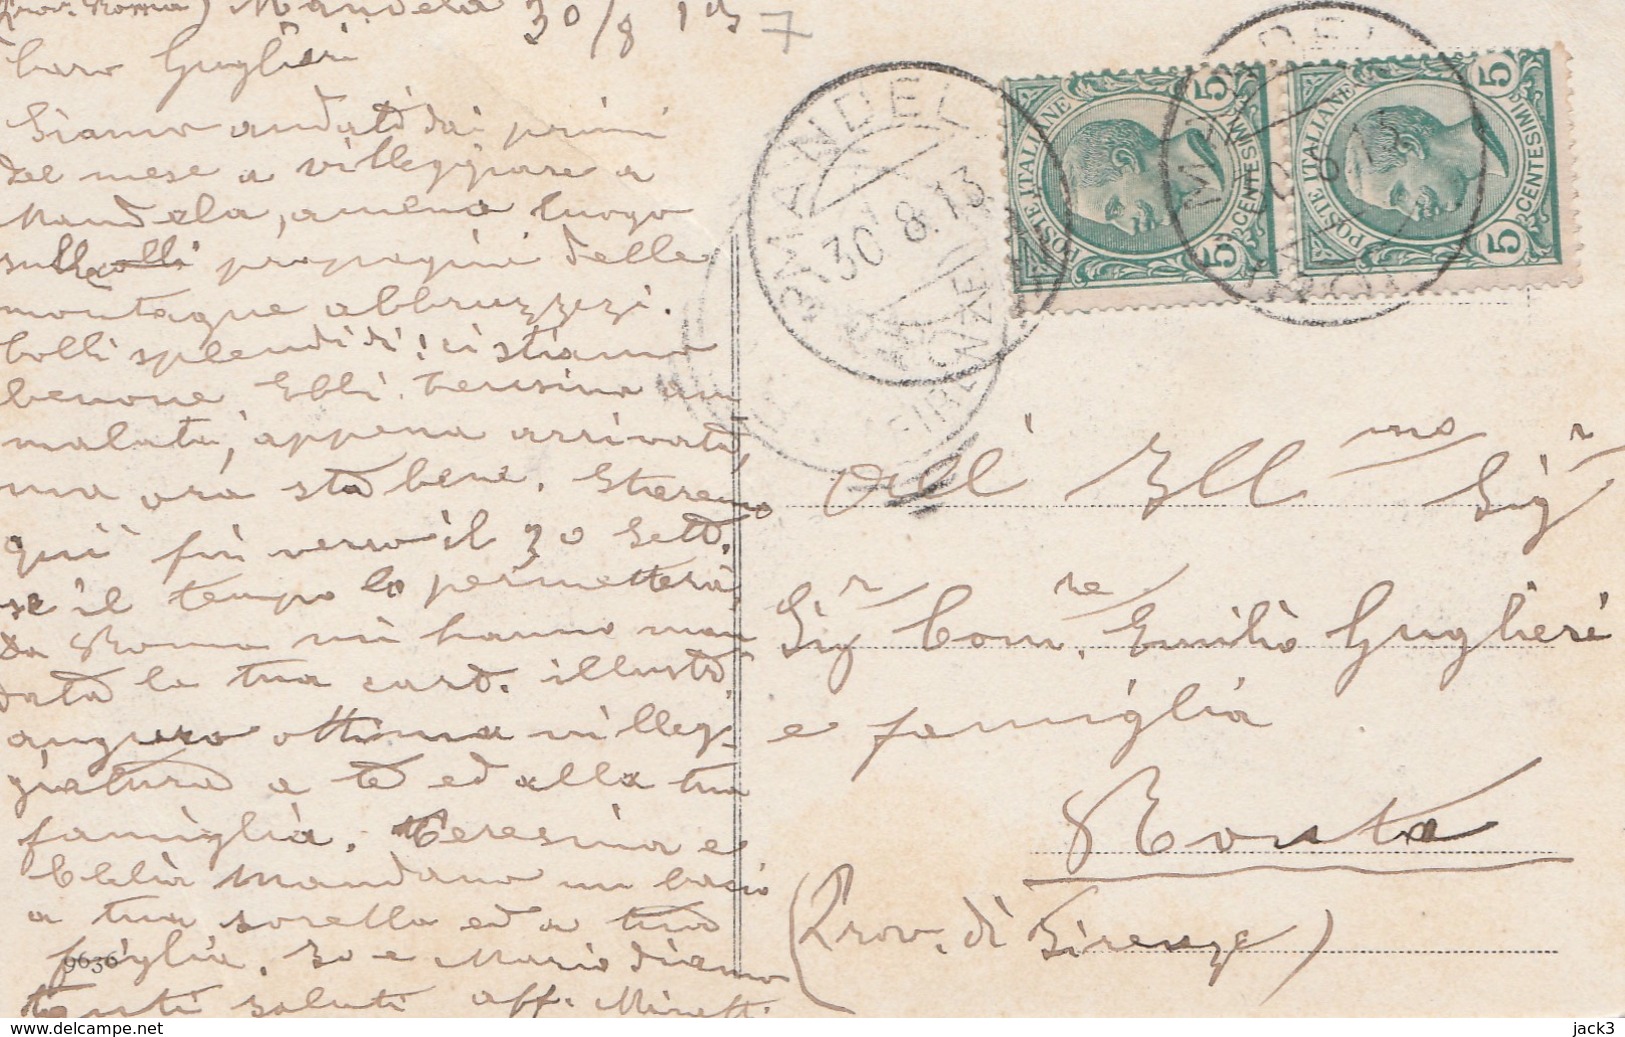 (Prov. Roma) Mandela 30/8 1913
7
Caro Guglieri
Siamo andati dai primi
del mese a villeggiare a
Mandela, ameno luogo
sulle propagini delle
montagne abbruzzezi.
Colli splendidi! ci stiamo
benone. Ebbi Teresina am
malata, appena arrivata,
ma ora sta bene. Staremo
qui fin verso il 30 Sett.
se il tempo lo permetterà,
da Roma mi hanno man
data la tua cart. illust.
auguro ottima villeg-
giatura a te ed alla tua
famiglia. Teresina e
Clelia mandano un bacio
a tua sorella ed a tua
figlia. Io e Mario diamo
tanti saluti aff. Minetti
9636
MANDELA
30.8.13
FIRENZE
POSTE ITALIANE
5 CENTESIMI 5
MANDELA
30.8.13
POSTE ITALIANE
5 CENTESIMI 5
All' Ill.mo Sigr
Sigr Com.re Emilio Guglieri
e famiglia
Ronta
(Prov. di Firenze)
www.delcampe.net
jack3